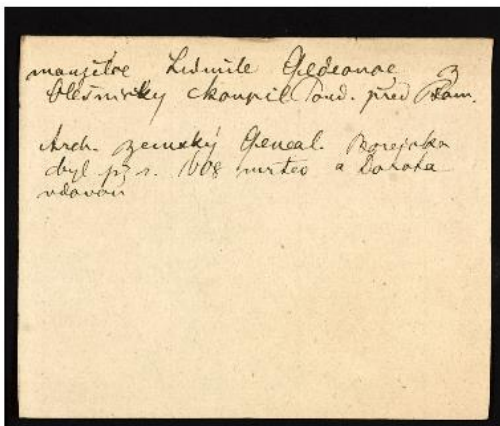 manželce Lidmile Gedeonae z
Olešničky skoupil Pozd. před Kam.
Arch. zemský Geneal. Borejoka
byl již r. 1608 mrtev a Dorota
vdovou